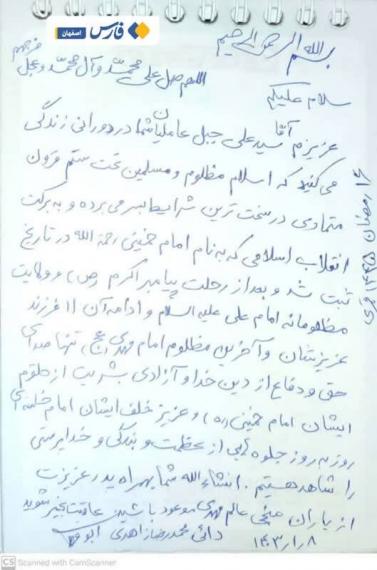 فارس اصفهان
بسم الله الرحمن الرحیم
اللهم صل علی محمد و آل محمد و عجل فرجهم
سلام علیکم
عزیزم آقا سید علی جبل عاملیان شما در دورانی زندگی
می کنید که اسلام مظلوم و مسلمین تحت ستم قرون
متمادی در سخت ترین شرایط بسر می برده و به برکت
انقلاب اسلامی که به نام امام خمینی رحمة الله در تاریخ
ثبت شد و بعد از رحلت پیامبر اکرم (ص) و ولایت
مظلومانه امام علی علیه السلام و ادامه آن ۱۱ فرزند
عزیزشان و آخرین مظلوم امام مهدی (عج) تنها صدای
حق و دفاع از دین خدا و آزادی بشریت از حلقوم
ایشان امام خمینی (ره) و عزیز خلف ایشان امام خامنه ای
روز به روز جلوه هایی از عظمت و بندگی و خدا پرستی
را شاهد هستیم. انشاء الله شما بهمراه پدر عزیزت
از یاران منجی عالم مهدی موعود باشید. عاقبت بخیر شوید
دائی محمدرضا زاهدی
۱۴۰۳/۱/۸
۱۶ رمضان ۱۴۴۵ قمری
CS Scanned with CamScanner